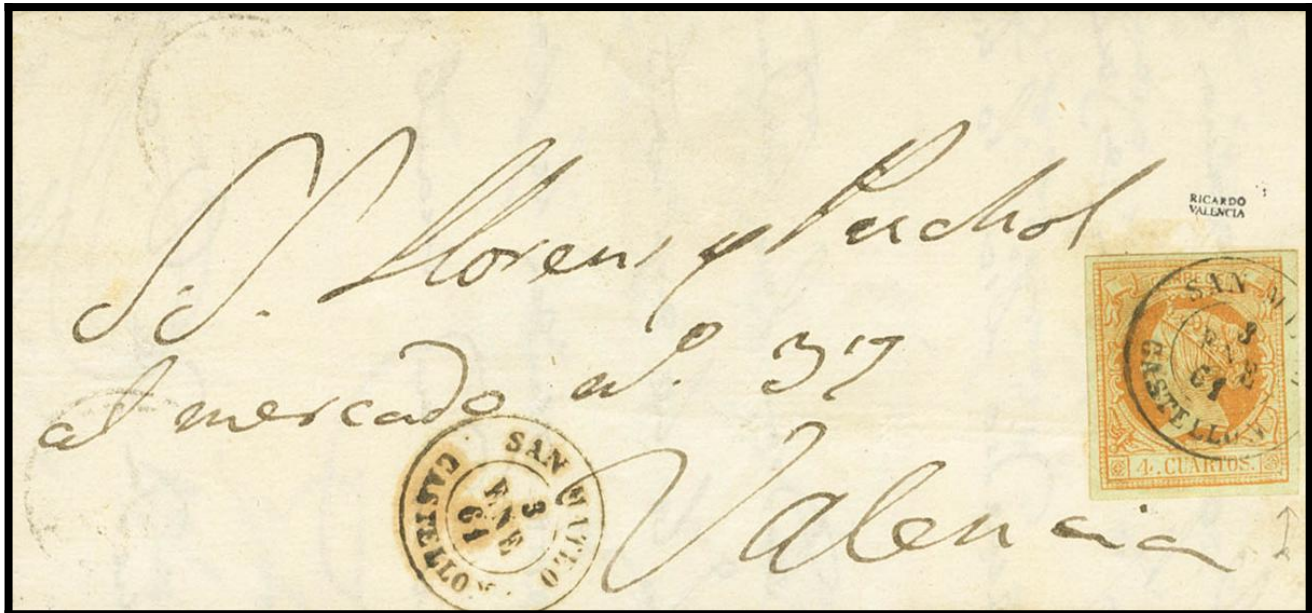 SS. Llorens y Perchol
al mercado nº. 37
Valencia
RICARDO
VALENCIA
SAN M
3
ENE
61
CASTELLON
4. CUARTOS.
SAN MATEO
3
ENE
61
CASTELLON.